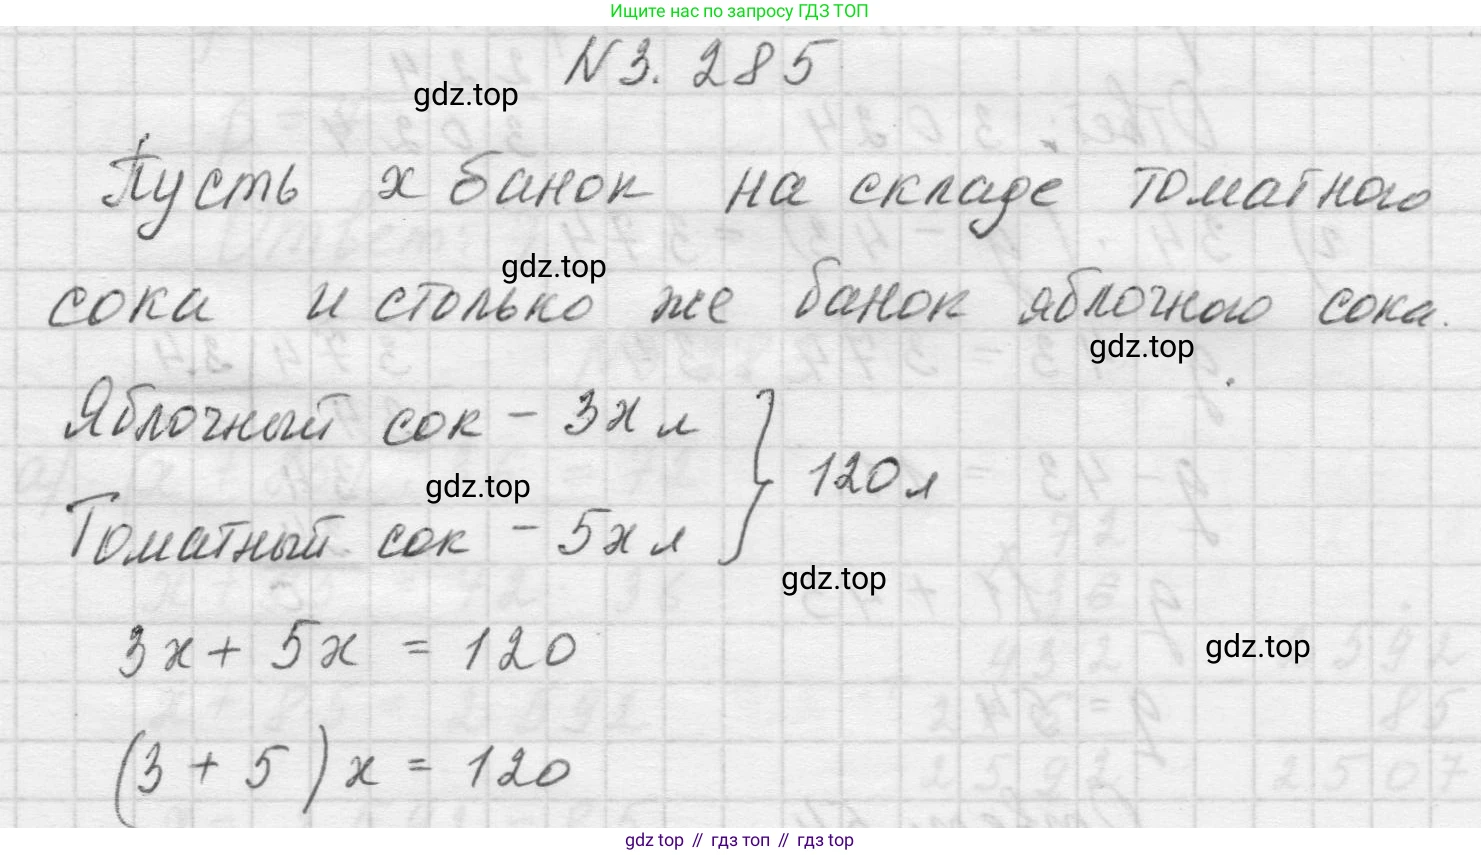 Ищите нас по запросу ГДЗ ТОП
N 3. 285
gdz.top
Пусть x банок на складе томатного
gdz.top
сока и столько же банок яблочного сока.
gdz.top
Яблочный сок - 3x л
120 л
gdz.top
Томатный сок - 5x л
gdz.top
3x + 5x = 120
gdz.top
(3 + 5) x = 120
gdz top // гдз топ // gdz top